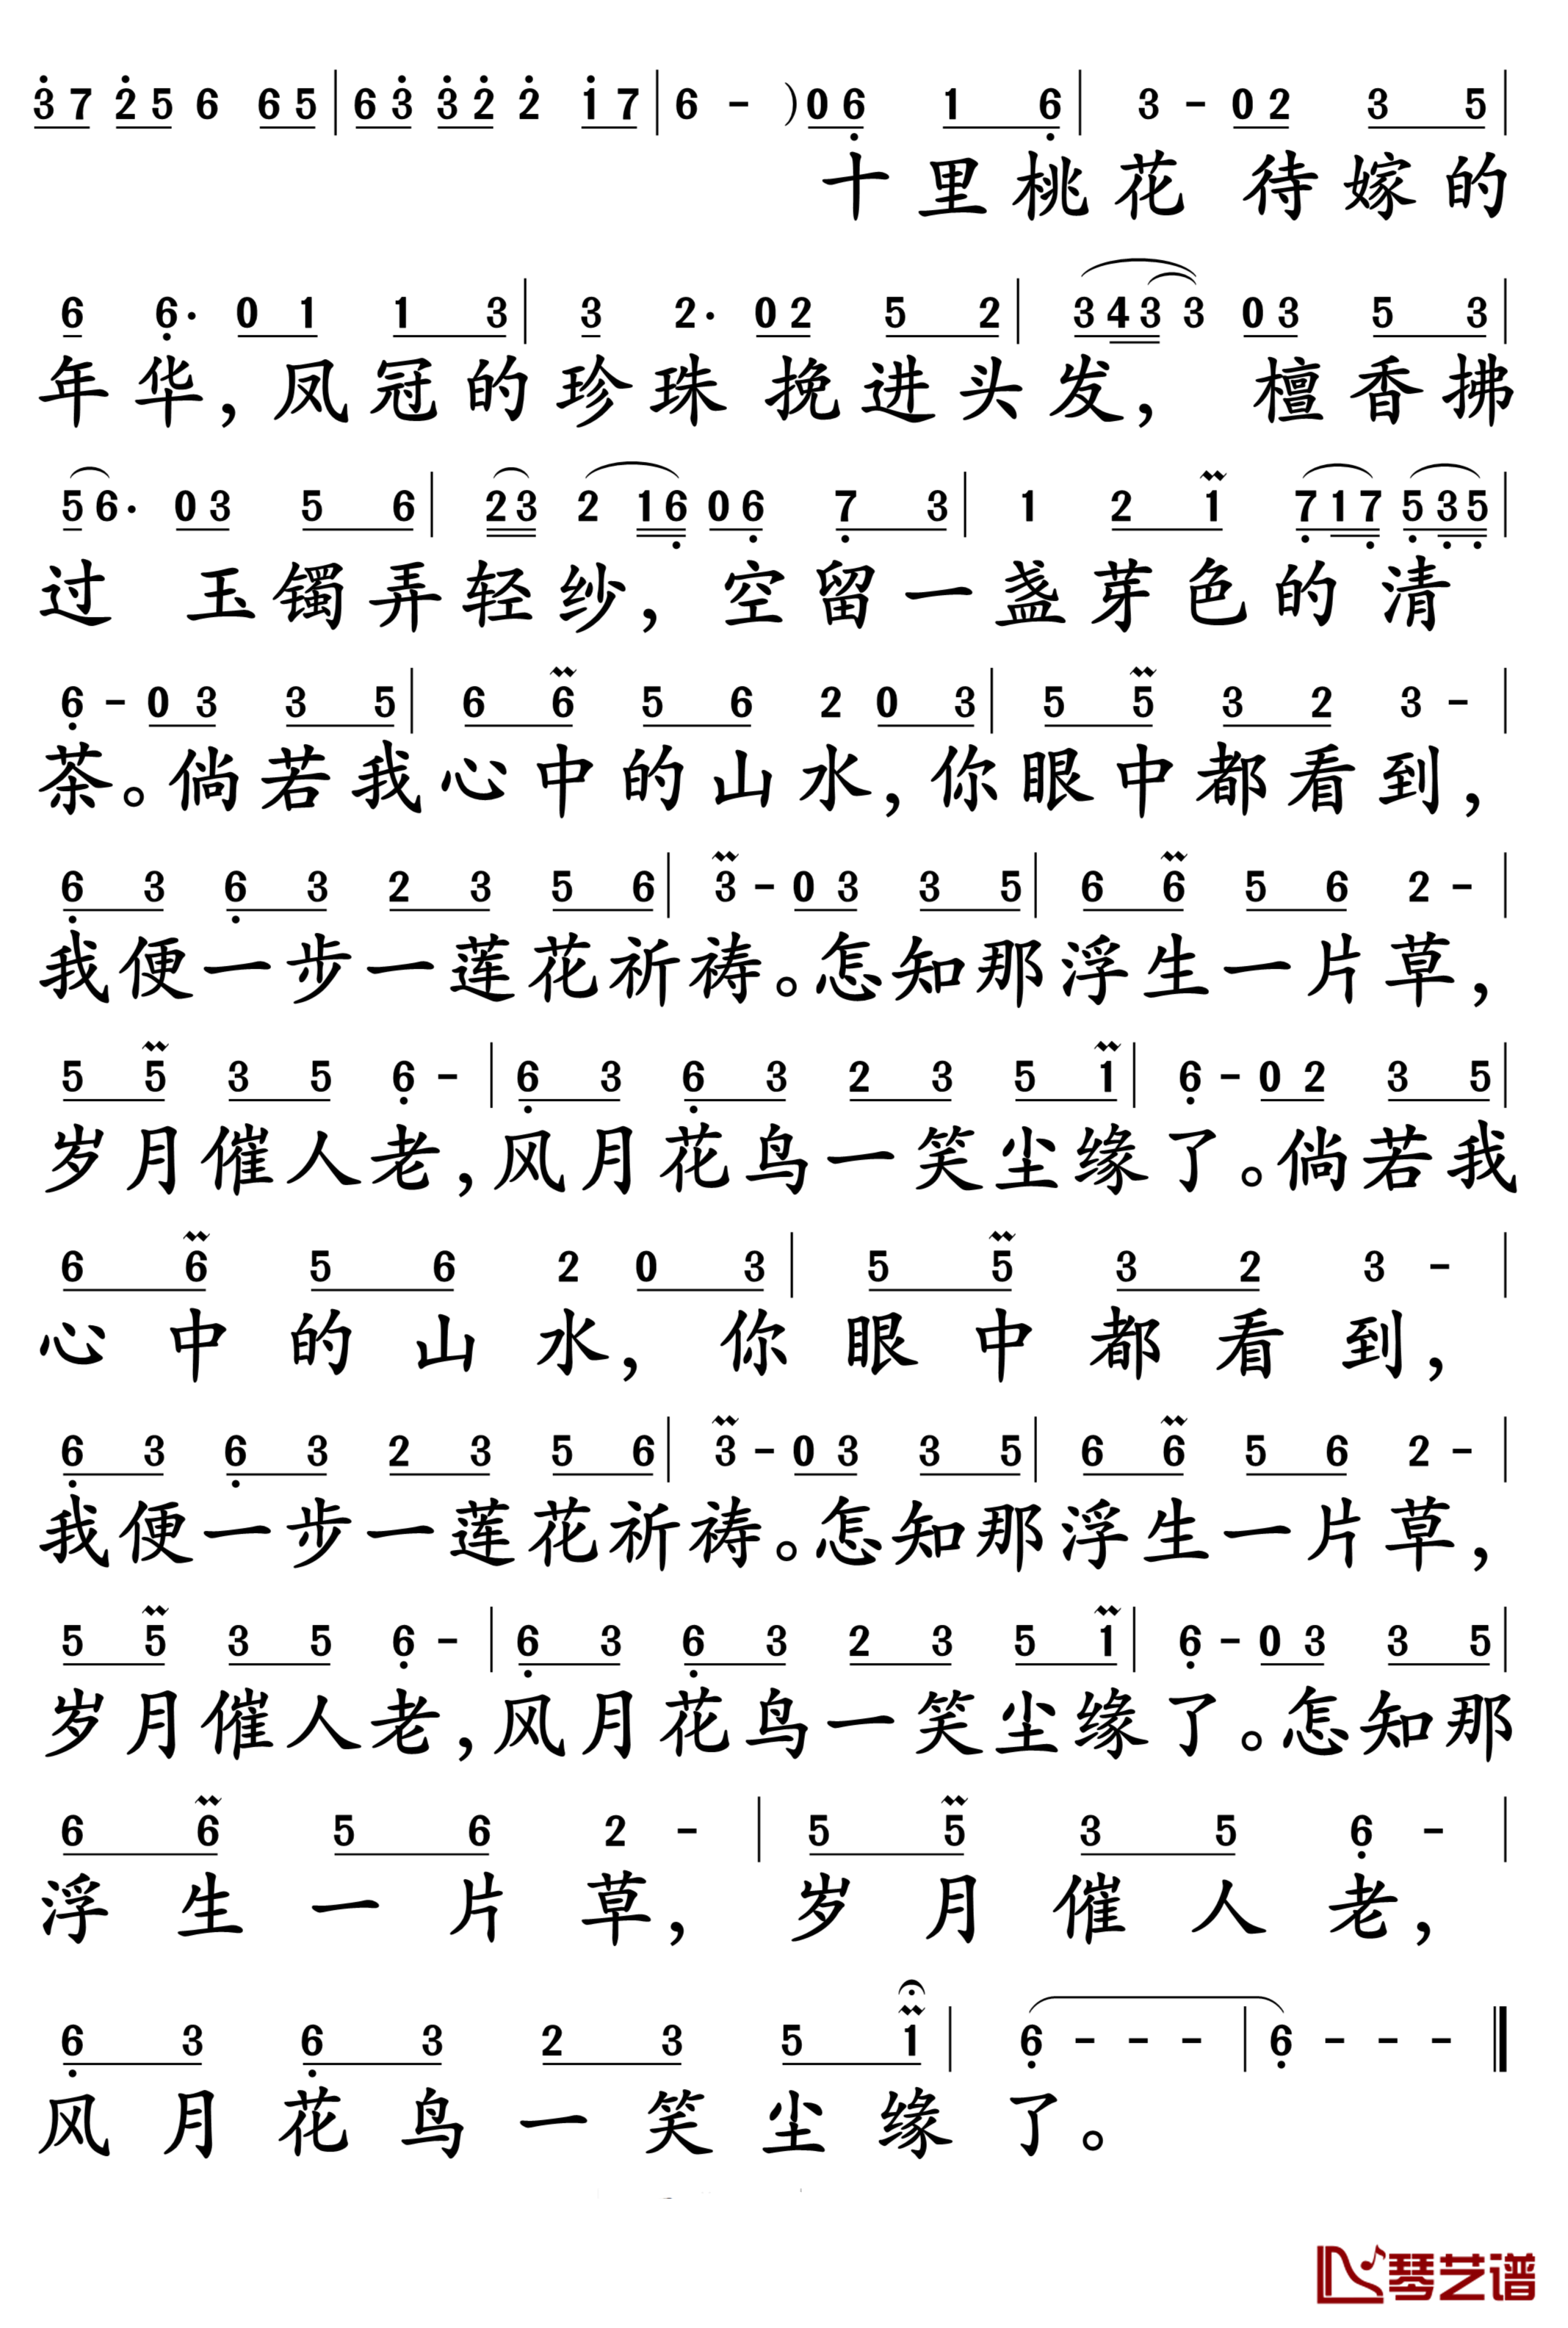 3 7 2 5 6 6 5 | 6 3 3 2 2 1 7 | 6 - ) 0 6 1 6 | 3 - 0 2 3 5 |
十里桃花 待嫁的
6 6· 0 1 1 3 | 3 2· 0 2 5 2 | 3 4 3 3 0 3 5 3 |
年华，凤冠的珍珠 挽进头发， 檀香拂
5 6· 0 3 5 6 | 2 3 2 1 6 0 6 7 3 | 1 2 1 7 1 7 5 3 5 |
过 玉镯弄轻纱，空留一盏芽色的清
6 - 0 3 3 5 | 6 6 5 6 2 0 3 | 5 5 3 2 3 - |
茶。倘若我心中的山水，你眼中都看到，
6 3 6 3 2 3 5 6 | 3 - 0 3 3 5 | 6 6 5 6 2 - |
我便一步一莲花祈祷。怎知那浮生一片草，
5 5 3 5 6 - | 6 3 6 3 2 3 5 1 | 6 - 0 2 3 5 |
岁月催人老，风月花鸟一笑尘缘了。倘若我
6 6 5 6 2 0 3 | 5 5 3 2 3 - |
心中的山水，你眼中都看到，
6 3 6 3 2 3 5 6 | 3 - 0 3 3 5 | 6 6 5 6 2 - |
我便一步一莲花祈祷。怎知那浮生一片草，
5 5 3 5 6 - | 6 3 6 3 2 3 5 1 | 6 - 0 3 3 5 |
岁月催人老，风月花鸟一笑尘缘了。怎知那
6 6 5 6 2 - | 5 5 3 5 6 - |
浮生一片草，岁月催人老，
6 3 6 3 2 3 5 1 | 6 - - - | 6 - - - ‖
风月花鸟一笑尘缘了。
琴艺谱